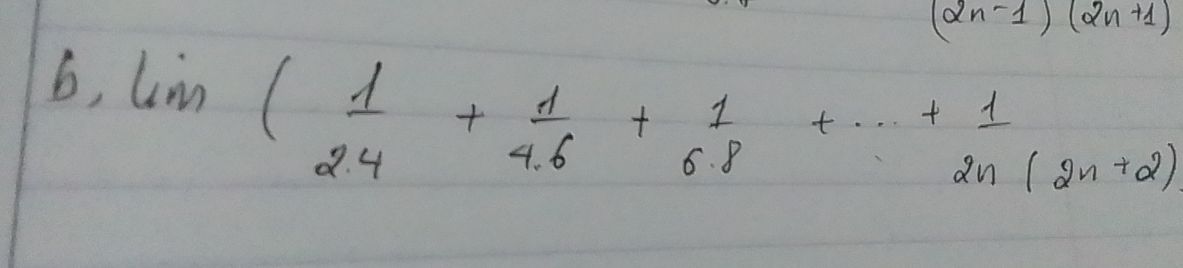 (2n-1)(2n+1)
b, lim ( 1/2.4 + 1/4.6 + 1/6.8 + ... + 1/2n(2n+2)